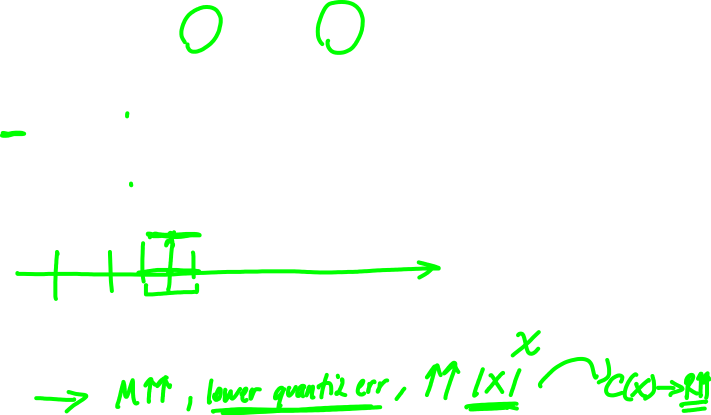 x
→ M↑↑, lower quantiz err, ↑↑ |X| C(X) → R↑↑